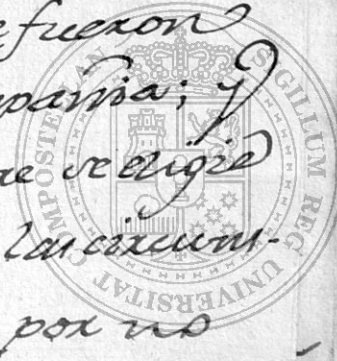 e fueron
pañia; y
se
las circuns-
por no
SIGILLUM REG UNIVERSITAT COMPOSTELLAN